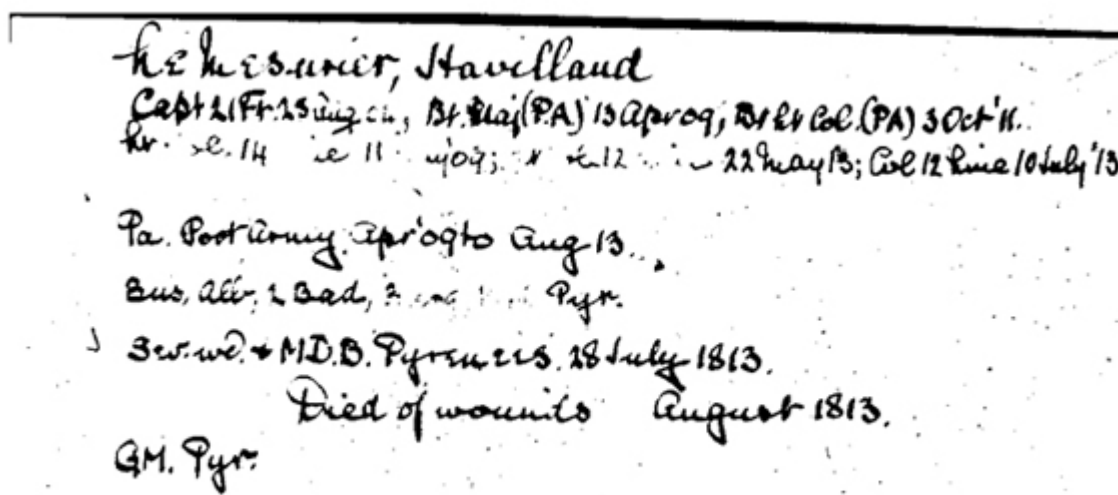 Le Mesurier, Havilland
Capt 21 Fr. 25 Aug 04; Bt. Maj (PA) 13 Apr 09; Bt Lt Col. (PA) 3 Oct '11.
14 11 09; 12 22 May 13; Col 12 Line 10 July '13
Pa. Port Army. Apr '09 to Aug 13.
Bus, Alb, 2 Bad, Pyr.
Sev. wd. & M.D.B. Pyrenees. 28 July 1813.
Died of wounds August 1813.
GM. Pyr.